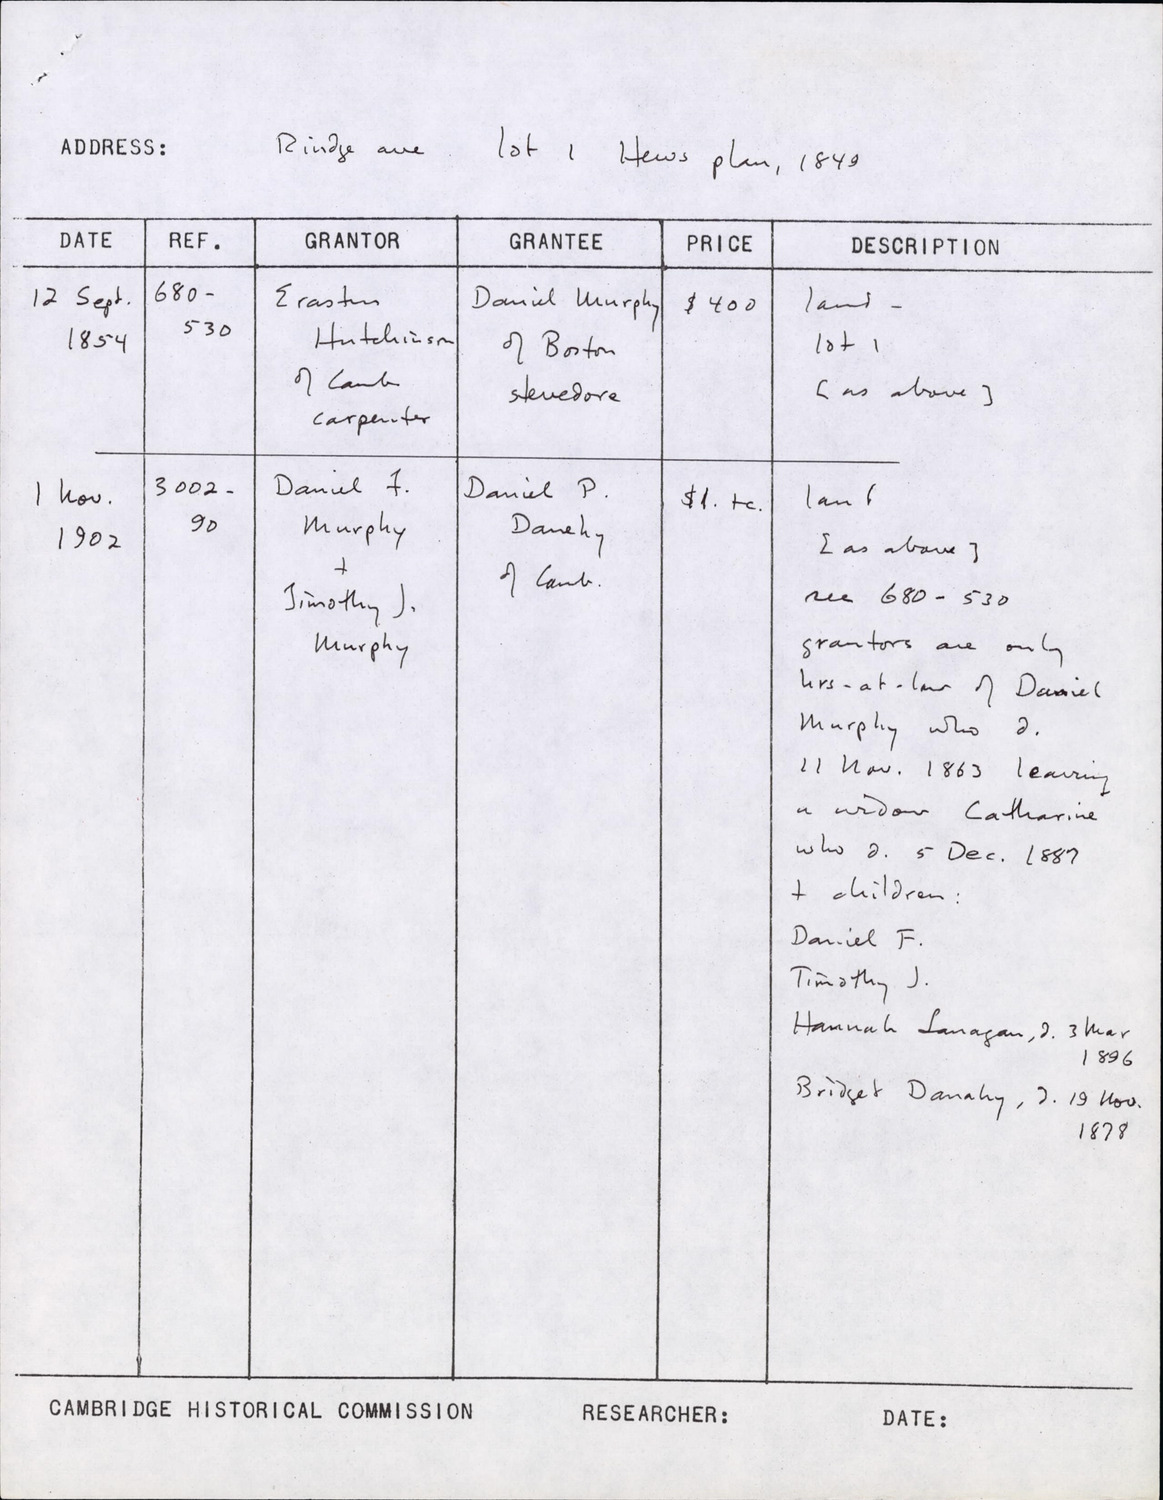 ADDRESS: Rindge ave lot 1 Hews plan, 1849
DATE REF. GRANTOR GRANTEE PRICE DESCRIPTION
12 Sept.
1854
680-
530
Erastus
Hutchinson
of Camb
carpenter
Daniel Murphy
of Boston
stevedore
$400
land -
lot 1
[as above]
1 Nov.
1902
3002-
90
Daniel F.
Murphy
+
Timothy J.
Murphy
Daniel P.
Danehy
of Camb.
$1. tc.
land
[as above]
see 680-530
grantors are only
hrs-at-law of Daniel
Murphy who d.
11 Nov. 1863 leaving
a widow Catharine
who d. 5 Dec. 1887
+ children:
Daniel F.
Timothy J.
Hannah Lanagan, d. 3 Mar
1896
Bridget Danahy, d. 19 Nov.
1878
CAMBRIDGE HISTORICAL COMMISSION RESEARCHER: DATE: